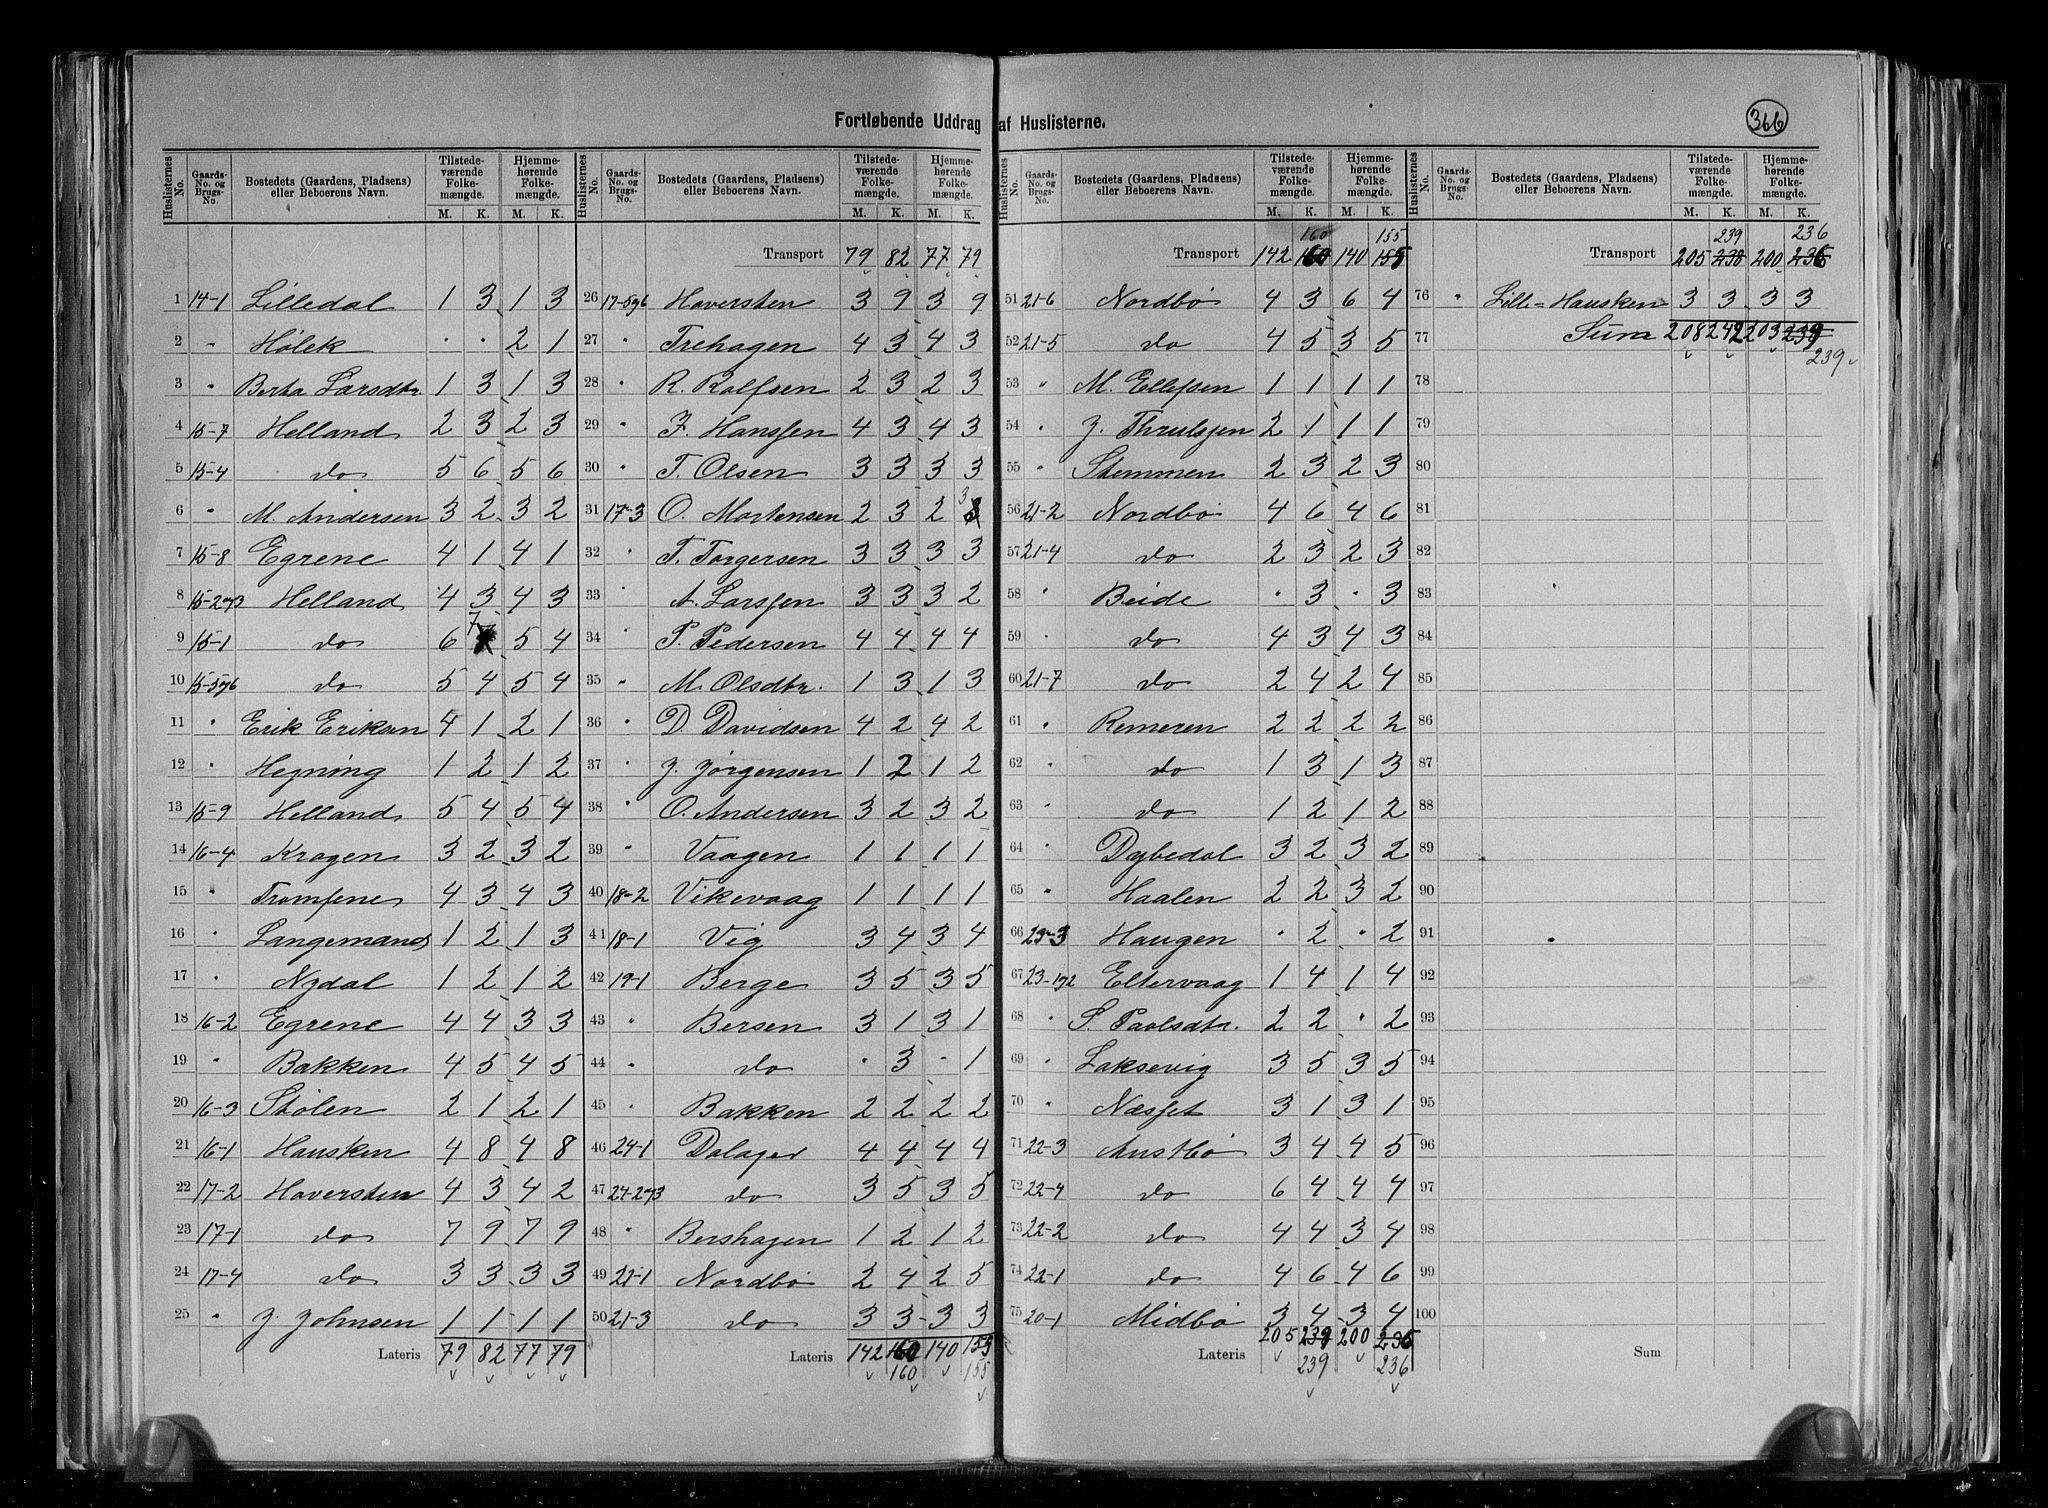 Fortløbende Uddrag af Huslisterne.
366
Huslisternes No. | Gaards-No. og Brugs-No. | Bostedets (Gaardens, Pladsens) eller Beboerens Navn. | Tilstedeværende Folkemængde. M. K. | Hjemmehørende Folkemængde. M. K.
1 14-1 Lilledal 1 3 1 3
2 " Hølek . . 2 1
3 " Berta Larsdtr. 1 3 1 3
4 15-7 Helland 2 3 2 3
5 15-4 do 5 6 5 6
6 " M. Andersen 3 2 3 2
7 15-8 Egrene 4 1 4 1
8 15-2og3 Helland 4 3 4 3
9 15-1 do 6 7 5 4
10 15-5og6 do 5 4 5 4
11 " Erik Eriksen 4 1 2 1
12 " Hegning 1 2 1 2
13 15-9 Helland 5 4 5 4
14 16-4 Kragen 3 2 3 2
15 " Tromsene 4 3 4 3
16 " Langemands 1 2 1 3
17 " Nydal 1 2 1 2
18 16-2 Egrene 4 4 3 3
19 " Bakken 4 5 4 5
20 16-3 Stølen 2 1 2 1
21 16-1 Hausken 4 8 4 8
22 17-2 Haversten 4 3 4 2
23 17-1 do 7 9 7 9
24 17-4 do 3 3 3 3
25 " J. Johnsen 1 1 1 1
Lateris 79 82 77 79
Huslisternes No. | Gaards-No. og Brugs-No. | Bostedets (Gaardens, Pladsens) eller Beboerens Navn. | Tilstedeværende Folkemængde. M. K. | Hjemmehørende Folkemængde. M. K.
Transport 79 82 77 79
26 17-5og6 Haversten 3 9 3 9
27 " Trehagen 4 3 4 3
28 " R. Rolfsen 2 3 2 3
29 " F. Hanssen 4 3 4 3
30 " T. Olsen 3 3 3 3
31 17-3 O. Mortensen 2 3 2 3
32 " T. Torgersen 3 3 3 3
33 " A. Larssen 3 3 3 2
34 " P. Pedersen 4 4 4 4
35 " M. Olsdtr. 1 3 1 3
36 " D. Davidsen 4 2 4 2
37 " J. Jørgensen 1 2 1 2
38 " O. Andersen 3 2 3 2
39 " Vaagen 1 1 1 1
40 18-2 Vikevaag 1 1 1 1
41 18-1 Vig 3 4 3 4
42 19-1 Berge 3 5 3 5
43 " Bersen 3 1 3 1
44 " do . 3 - 1
45 " Bakken 2 2 2 2
46 24-1 Dalager 4 4 4 4
47 24-2og3 do 3 5 3 5
48 " Bershagen 1 2 1 2
49 21-1 Nordbø 2 4 2 5
50 21-3 do 3 3 3 3
Lateris 142 160 140 155
160 155
Huslisternes No. | Gaards-No. og Brugs-No. | Bostedets (Gaardens, Pladsens) eller Beboerens Navn. | Tilstedeværende Folkemængde. M. K. | Hjemmehørende Folkemængde. M. K.
160 155
Transport 142 160 140 155
51 21-6 Nordbø 4 3 6 4
52 21-5 do 4 5 3 5
53 " M. Ellefsen 1 1 1 1
54 " J. Thrulssen 2 1 1 1
55 " Stemmen 2 3 2 3
56 21-2 Nordbø 4 6 4 6
57 21-4 do 2 3 2 3
58 " Beide . 3 . 3
59 " do 4 3 4 3
60 21-7 do 2 4 2 4
61 " Remeren 2 2 2 2
62 " do 1 3 1 3
63 " do 1 2 1 2
64 " Dybedal 3 2 3 2
65 " Haalen 2 2 3 2
66 23-3 Haugen . 2 . 2
67 23-1og2 Eltervaag 1 4 1 4
68 " S. Paulsdtr. 2 2 . 2
69 " Laksevig 3 5 3 5
70 " Næsset 3 1 3 1
71 22-3 Austbø 3 4 4 5
72 22-4 do 6 4 4 4
73 22-2 do 4 4 3 4
74 22-1 do 4 6 4 6
75 20-1 Midbø 3 4 3 4
Lateris 205 239 200 236
239 236
Huslisternes No. | Gaards-No. og Brugs-No. | Bostedets (Gaardens, Pladsens) eller Beboerens Navn. | Tilstedeværende Folkemængde. M. K. | Hjemmehørende Folkemængde. M. K.
239 236
Transport 205 238 200 236
76 " Lille-Hausken 3 3 3 3
77 Sum 208 242 203 239
239
78
79
80
81
82
83
84
85
86
87
88
89
90
91
92
93
94
95
96
97
98
99
100
Sum